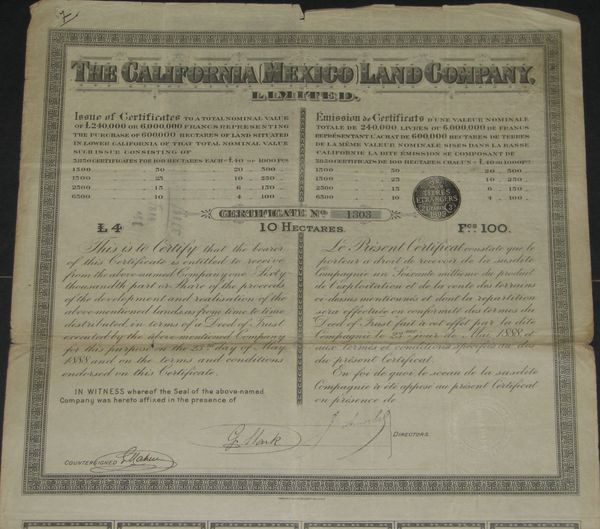 THE CALIFORNIA (MEXICO) LAND COMPANY,
LIMITED.
Issue of Certificates TO A TOTAL NOMINAL VALUE
OF £240,000 OR 6,000,000 FRANCS REPRESENTING
THE PURCHASE OF 600,000 HECTARES OF LAND SITUATED
IN LOWER CALIFORNIA OF THAT TOTAL NOMINAL VALUE
SUCH ISSUE CONSISTING OF
3850 CERTIFICATES FOR 100 HECTARES EACH = £40 OR 1000 FCS
1500 .. 50 .. 20 .. 500 ..
1500 .. 25 .. 10 .. 250 ..
2500 .. 15 .. 6 .. 150 ..
6500 .. 10 .. 4 .. 100 ..
Emission de Certificats D'UNE VALEUR NOMINALE
TOTALE DE 240,000 LIVRES OU 6,000,000 DE FRANCS
REPRÉSENTANT L'ACHAT DE 600,000 HECTARES DE TERRES
DE LA MÊME VALEUR NOMINALE SISES DANS LA BASSE
CALIFORNIE LA DITE ÉMISSION SE COMPOSANT DE
3850 CERTIFICATS DE 100 HECTARES CHACUN = £40 OU 1000 FCS
1500 .. 50 .. 20 .. 500 ..
1500 .. 25 .. 10 .. 250 ..
2500 .. 15 .. 6 .. 150 ..
6500 .. 10 .. 4 .. 100 ..
TITRES
ETRANGERS
CERTIFICATE No 1303
£4
10 HECTARES.
FCS 100.
This is to Certify that the bearer
of this Certificate is entitled to receive
from the above named Company one Sixty
thousandth part or Share of the proceeds
of the development and realisation of the
above mentioned lands as from time to time
distributed in terms of a Deed of Trust
executed by the above mentioned Company
for this purpose on the 25th day of May
1888 and on the terms and conditions
endorsed on this Certificate.
IN WITNESS whereof the Seal of the above-named
Company was hereto affixed in the presence of
Le Présent Certificat constate que le
porteur a droit de recevoir de la susdite
Compagnie un Soixante millième du produit
de l'exploitation et de la vente des terres
ci-dessus mentionnées et dont la répartition
sera effectuée en conformité des termes du
Deed of Trust fait à cet effet par la dite
Compagnie le 25me jour de Mai 1888 et
aux termes et conditions au dos
du présent Certificat.
En foi de quoi le sceau de la susdite
Compagnie a été apposé au présent Certificat
en présence de
DIRECTORS.
COUNTERSIGNED